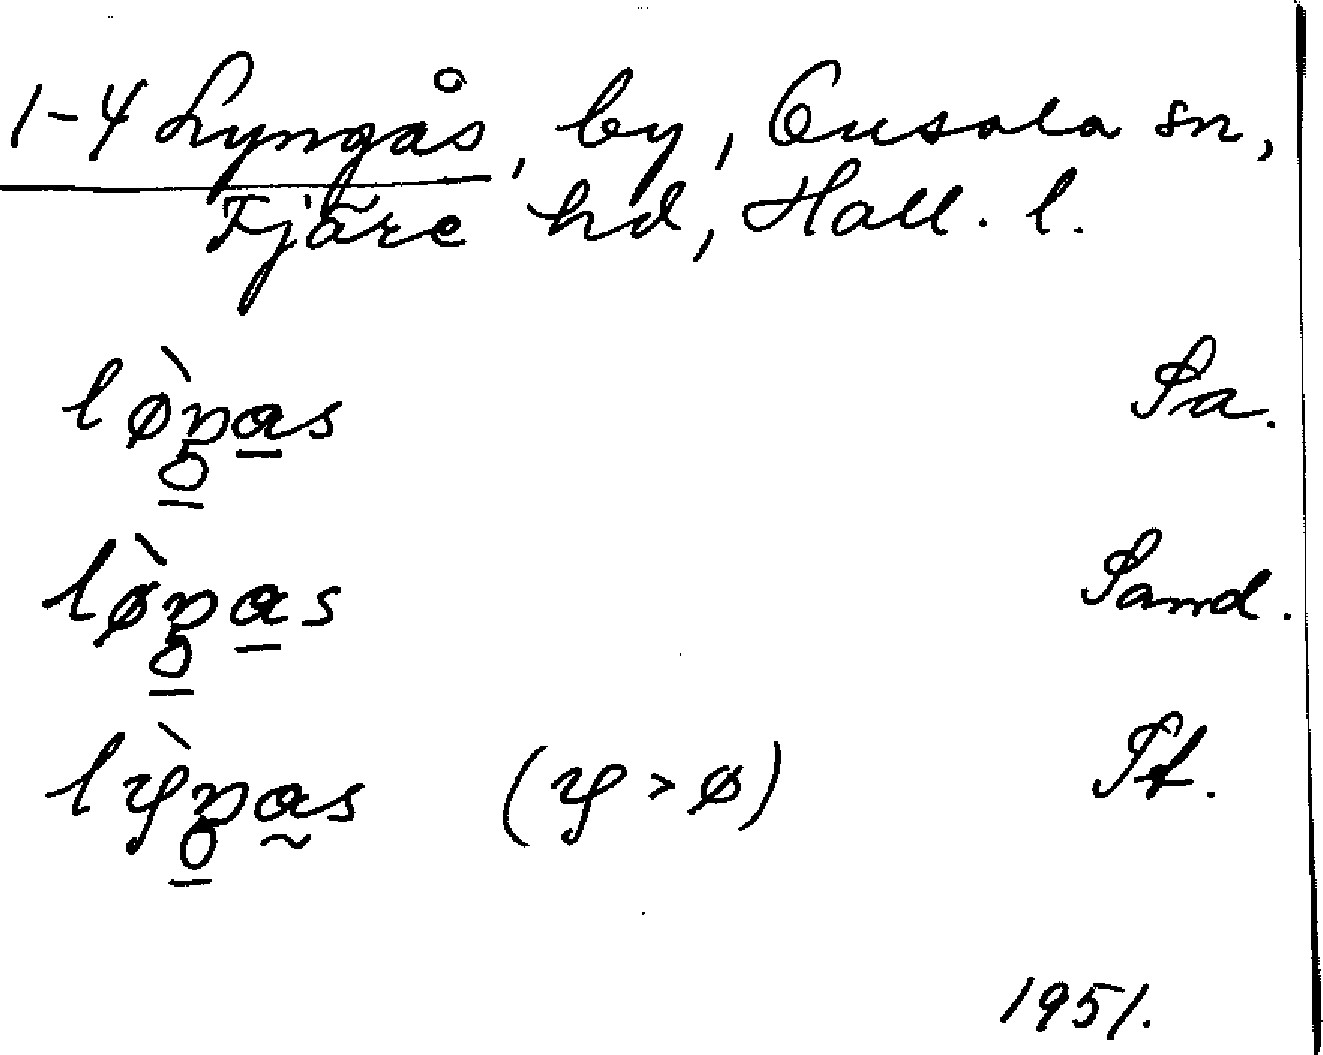 1-4 Lyngås, by, Onsala sn,
Fjäre hd, Hall. l.
lø̀ŋas Pa.
lø̀ŋas Sand.
lỳŋas (y > ø) Pf.
1951.